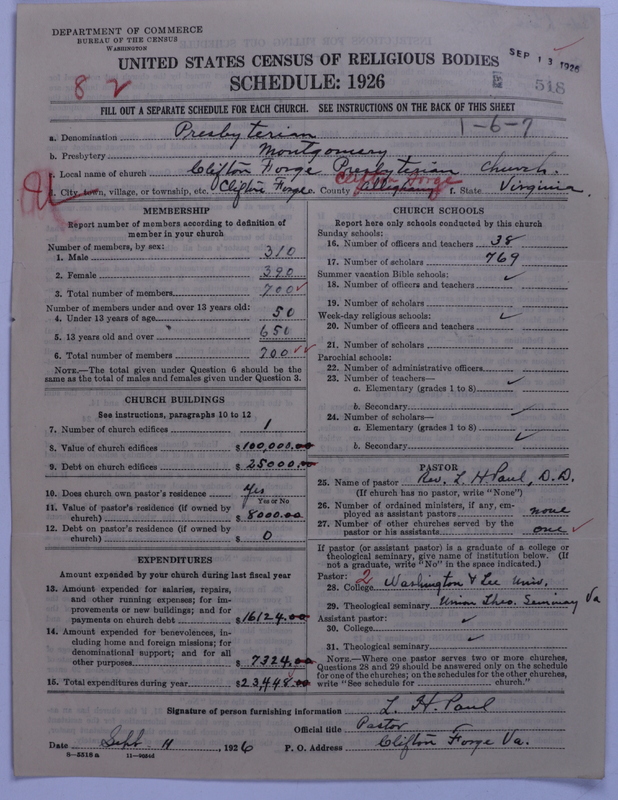 DEPARTMENT OF COMMERCE
BUREAU OF THE CENSUS
WASHINGTON
UNITED STATES CENSUS OF RELIGIOUS BODIES
SEP 13 1926
SCHEDULE: 1926
8 2
518
FILL OUT A SEPARATE SCHEDULE FOR EACH CHURCH. SEE INSTRUCTIONS ON THE BACK OF THIS SHEET
1-6-7
a. Denomination Presbyterian
b. Presbytery Montgomery
c. Local name of church Clifton Forge Presbyterian Church.
d. City, town, village, or township, etc. Clifton Forge e. County Alleghany Clifton Forge f. State Virginia.
MEMBERSHIP
Report number of members according to definition of
member in your church
Number of members, by sex:
1. Male 310
2. Female 390
3. Total number of members 700
Number of members under and over 13 years old:
4. Under 13 years of age 50
5. 13 years old and over 650
6. Total number of members 700
NOTE.—The total given under Question 6 should be the
same as the total of males and females given under Question 3.
CHURCH BUILDINGS
See instructions, paragraphs 10 to 12
7. Number of church edifices 1
8. Value of church edifices $100,000.00
9. Debt on church edifices $25000.00
10. Does church own pastor's residence Yes
Yes or No
11. Value of pastor's residence (if owned by
church) $8000.00
12. Debt on pastor's residence (if owned by
church) $0
EXPENDITURES
Amount expended by your church during last fiscal year
13. Amount expended for salaries, repairs,
and other running expenses; for im-
provements or new buildings; and for
payments on church debt $16124.00
14. Amount expended for benevolences, in-
cluding home and foreign missions; for
denominational support; and for all
other purposes $7324.00
15. Total expenditures during year $23,448.00
CHURCH SCHOOLS
Report here only schools conducted by this church
Sunday schools:
16. Number of officers and teachers 38
17. Number of scholars 769
Summer vacation Bible schools:
18. Number of officers and teachers
19. Number of scholars
Week-day religious schools:
20. Number of officers and teachers
21. Number of scholars
Parochial schools:
22. Number of administrative officers
23. Number of teachers—
a. Elementary (grades 1 to 8)
b. Secondary
24. Number of scholars—
a. Elementary (grades 1 to 8)
b. Secondary
PASTOR
25. Name of pastor Rev. L. H. Paul, D.D.
(If church has no pastor, write "None")
26. Number of ordained ministers, if any, em-
ployed as assistant pastors none
27. Number of other churches served by the
pastor or his assistants one
If pastor (or assistant pastor) is a graduate of a college or
theological seminary, give name of institution below. (If
not a graduate, write "No" in the space indicated.)
Pastor: 2
28. College Washington & Lee Univ.
29. Theological seminary Union Theo. Seminary Va
Assistant pastor:
30. College
31. Theological seminary
NOTE.—Where one pastor serves two or more churches,
Questions 28 and 29 should be answered only on the schedule
for one of the churches; on the schedules for the other churches,
write "See schedule for church."
Signature of person furnishing information L. H. Paul
Official title Pastor
Date Sept. 11, 1926 P. O. Address Clifton Forge Va.
8—5518a